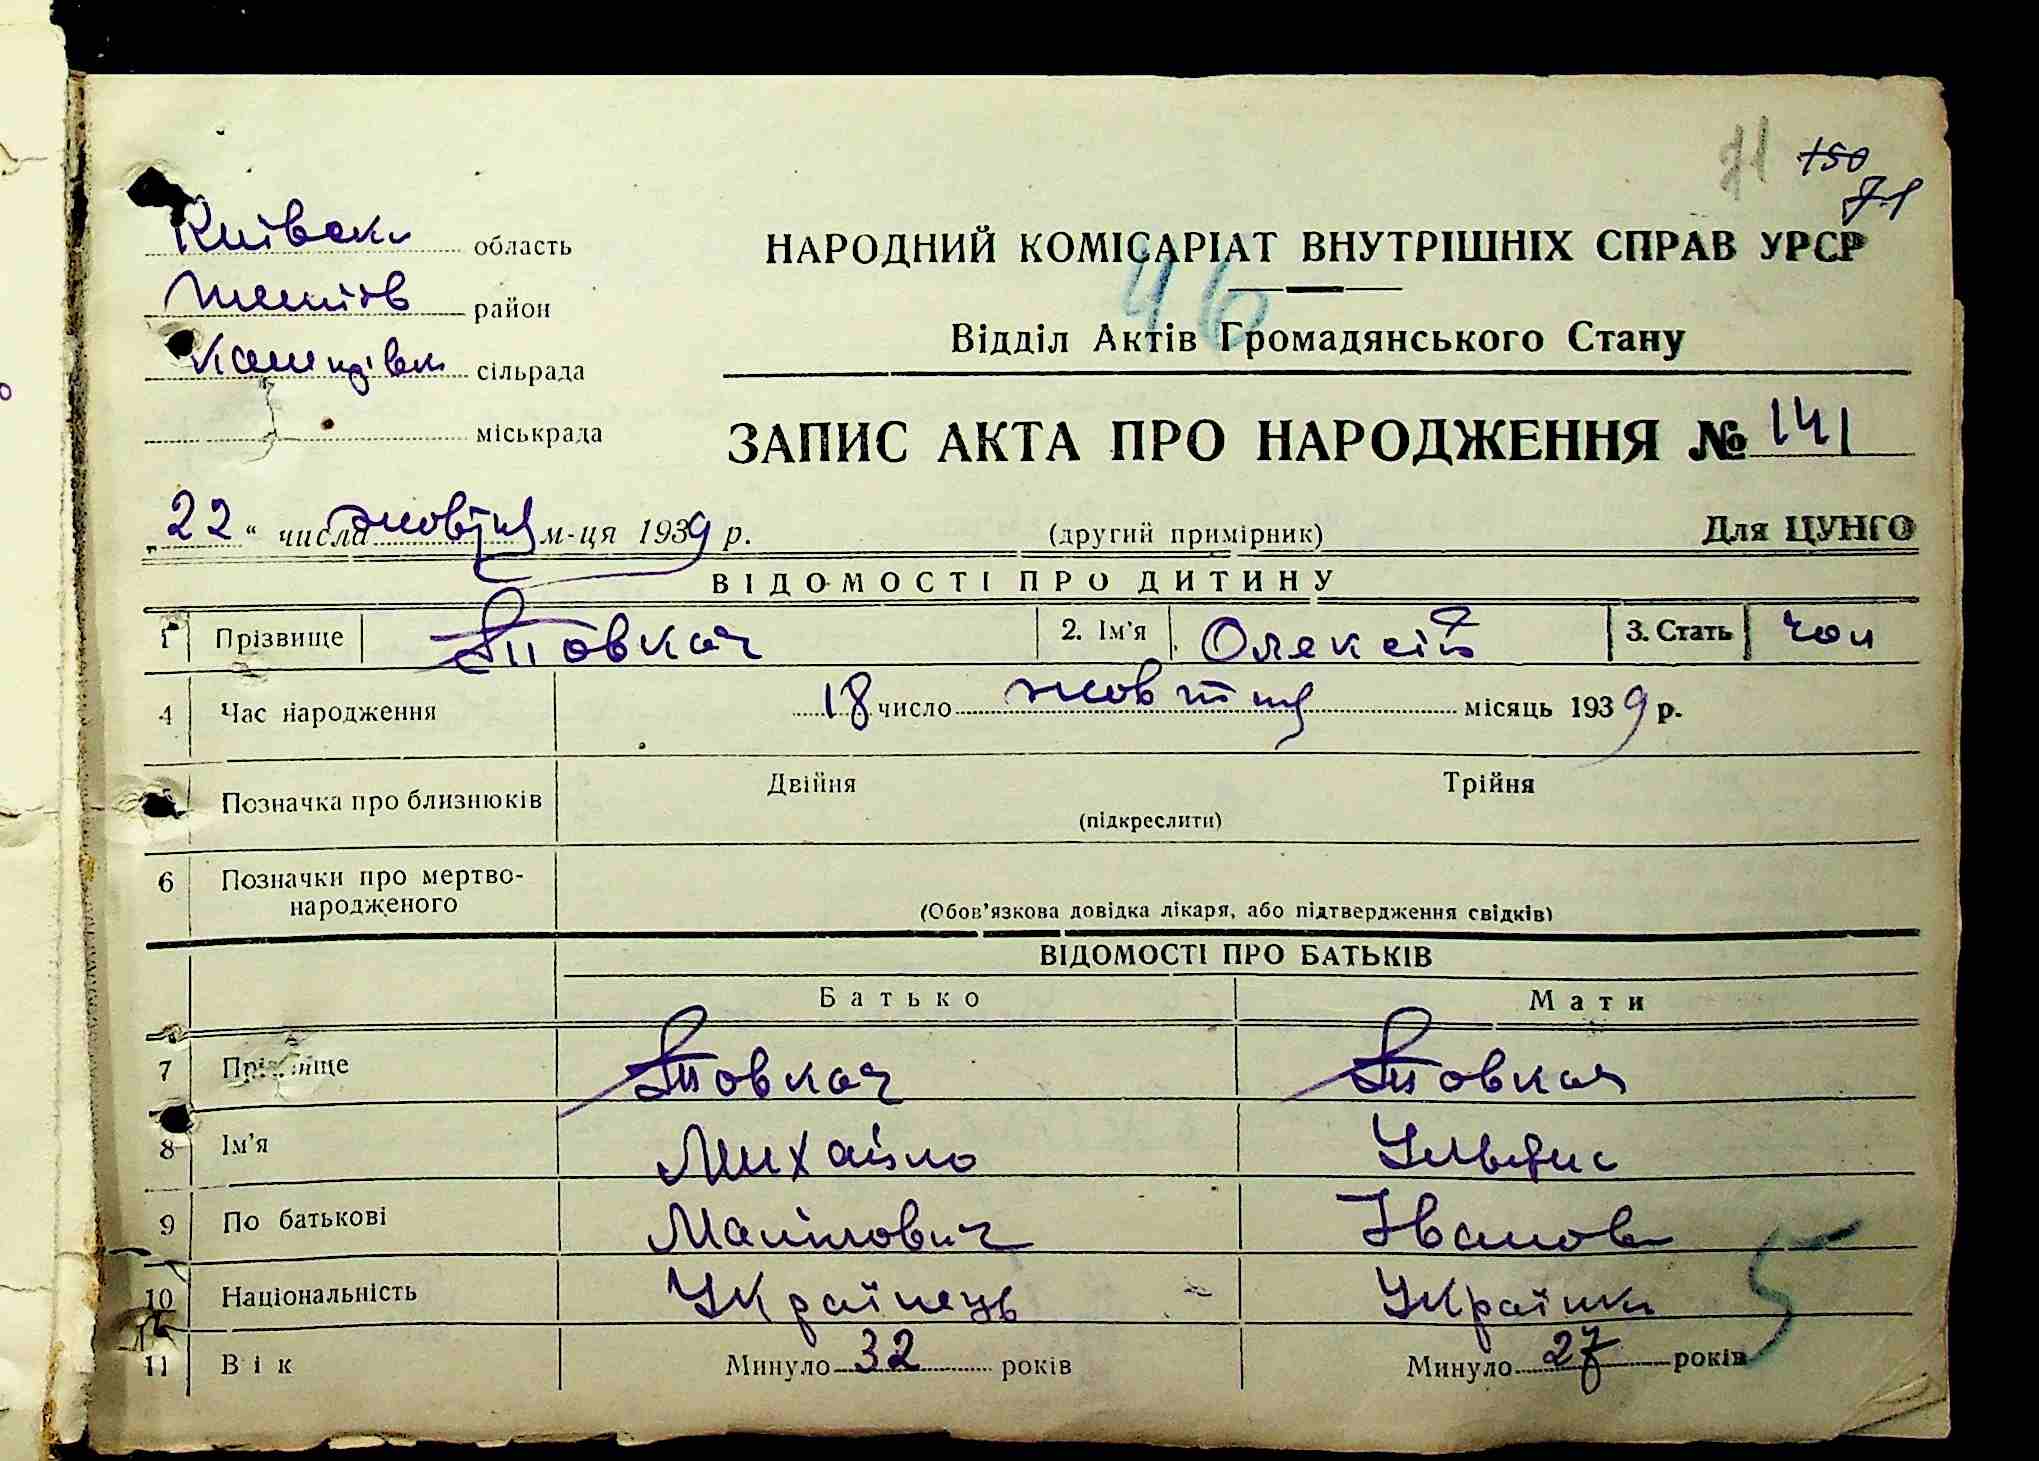 71 150
71
Київськ область
район
сільрада
міськрада
НАРОДНИЙ КОМІСАРІАТ ВНУТРІШНІХ СПРАВ УРСР
46
Відділ Актів Громадянського Стану
ЗАПИС АКТА ПРО НАРОДЖЕННЯ № 141
„22“ числа жовтня м-ця 1939 р.
(другий примірник)
Для ЦУНГО
ВІДОМОСТІ ПРО ДИТИНУ
1 Прізвище Товкач 2. Ім'я Олексій 3. Стать чол
4 Час народження 18 число жовтня місяць 1939 р.
Позначка про близнюків Двійня Трійня
(підкреслити)
6 Позначки про мертво-
народженого
(Обов'язкова довідка лікаря, або підтвердження свідків)
ВІДОМОСТІ ПРО БАТЬКІВ
Батько Мати
7 Прізвище Товкач Товкач
8 Ім'я Михайло
9 По батькові Іванов
10 Національність Українець Українка
5
11 Вік Минуло 32 років Минуло 27 років